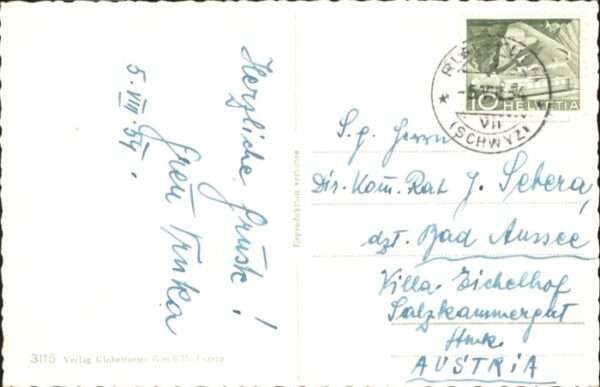 Herzliche Grüsse!
5. VIII 54.
Vrtka
3115 Verlag Globetrotter G.m.b.H. Luzern
Reproduktion verboten
10 HELVETIA
VII
(SCHWYZ)
S. g. Herrn
Dir. Kom. Rat J. Sebera,
dzt. Bad Aussee
Villa Eichelhof
Salzkammergut
Stmk.
AUSTRIA